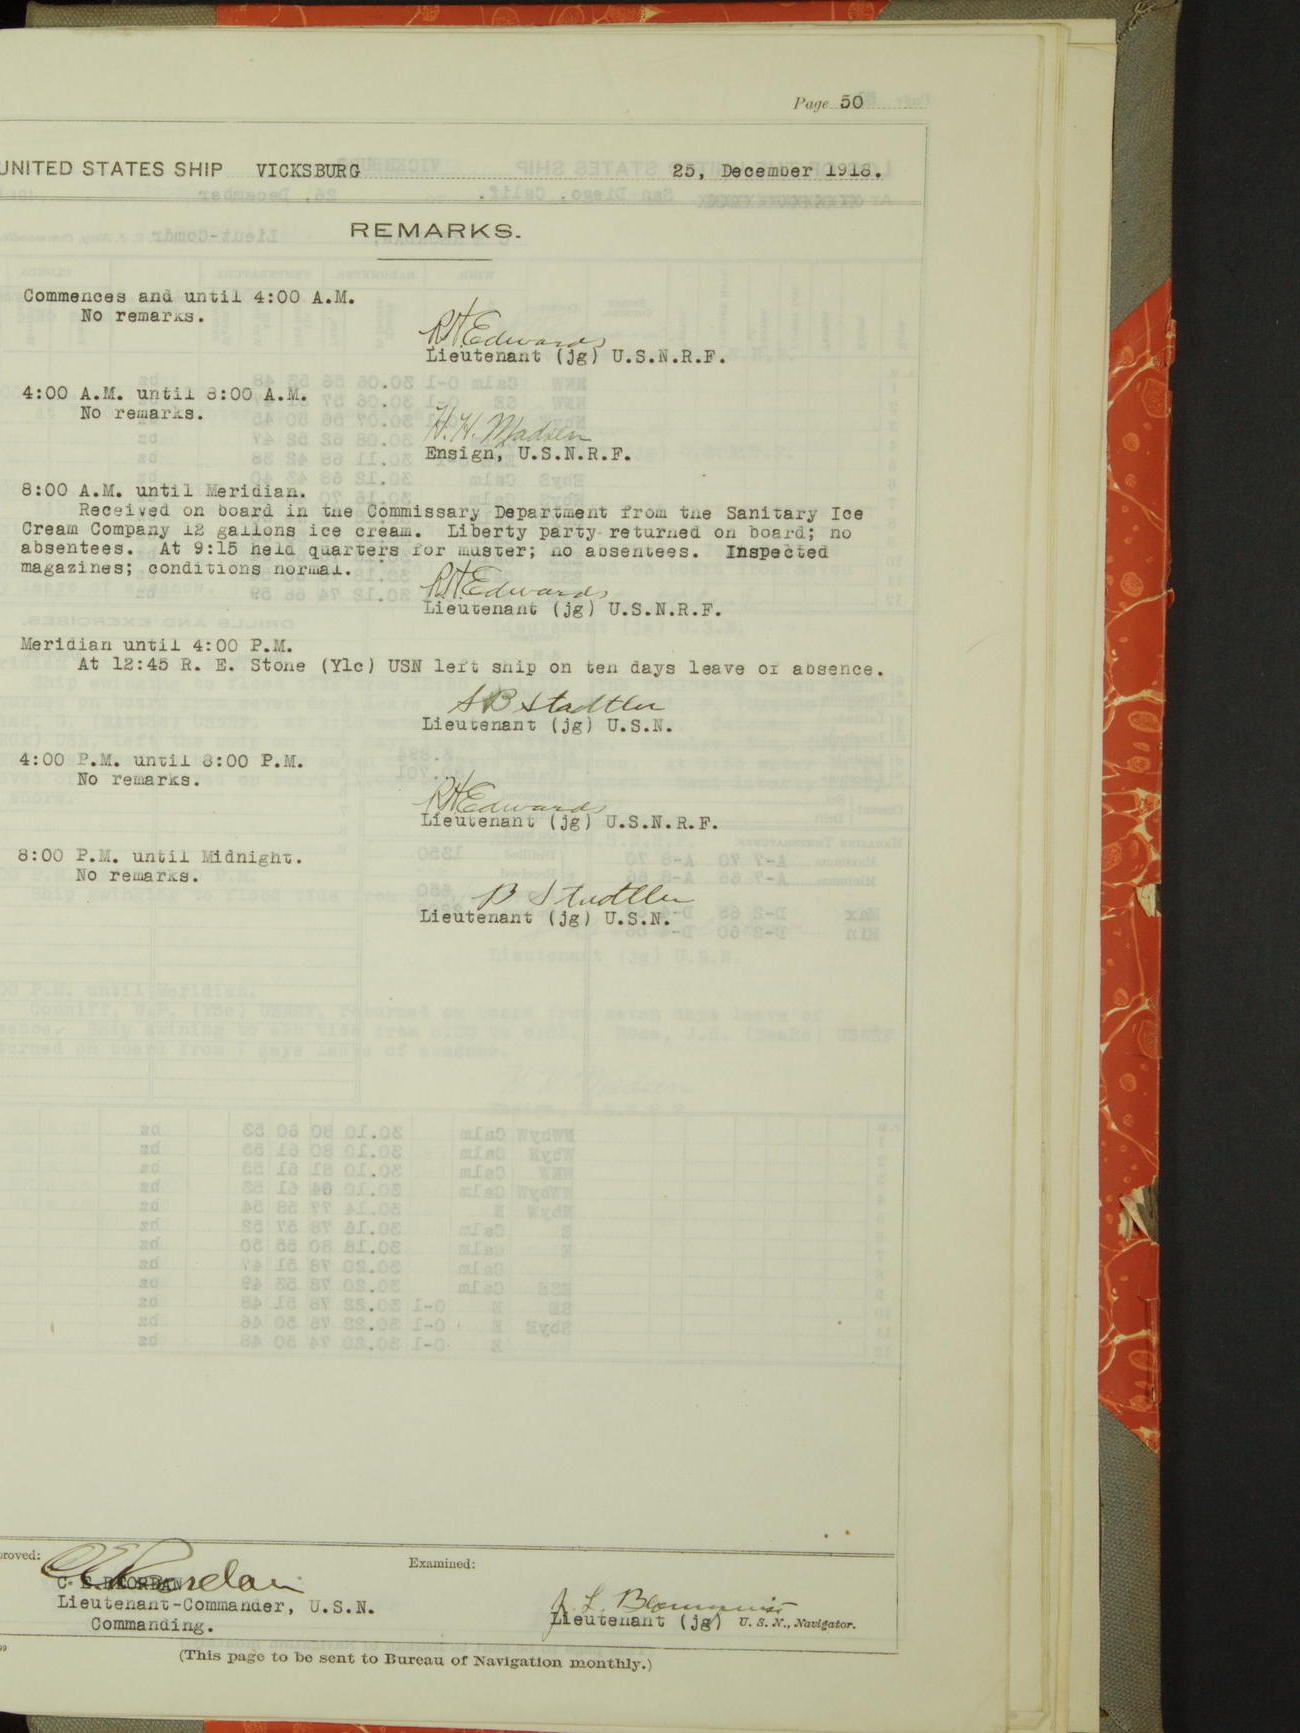 Page 50
UNITED STATES SHIP VICKSBURG 25, December 1918.
REMARKS.
Commences and until 4:00 A.M.
No remarks.
R H Edwards
Lieutenant (jg) U.S.N.R.F.
4:00 A.M. until 8:00 A.M.
No remarks.
H. H. Madsen
Ensign, U.S.N.R.F.
8:00 A.M. until Meridian.
Received on board in the Commissary Department from the Sanitary Ice
Cream Company 12 gallons ice cream. Liberty party returned on board; no
absentees. At 9:15 held quarters for muster; no absentees. Inspected
magazines; conditions normal.
R H Edwards
Lieutenant (jg) U.S.N.R.F.
Meridian until 4:00 P.M.
At 12:45 R. E. Stone (Y1c) USN left ship on ten days leave of absence.
S B Stadtler
Lieutenant (jg) U.S.N.
4:00 P.M. until 8:00 P.M.
No remarks.
R H Edwards
Lieutenant (jg) U.S.N.R.F.
8:00 P.M. until Midnight.
No remarks.
B Stadtler
Lieutenant (jg) U.S.N.
proved:
Examined:
Lieutenant-Commander, U.S.N.
Commanding.
J. L. Blomquist
Lieutenant (jg) U. S. N., Navigator.
(This page to be sent to Bureau of Navigation monthly.)